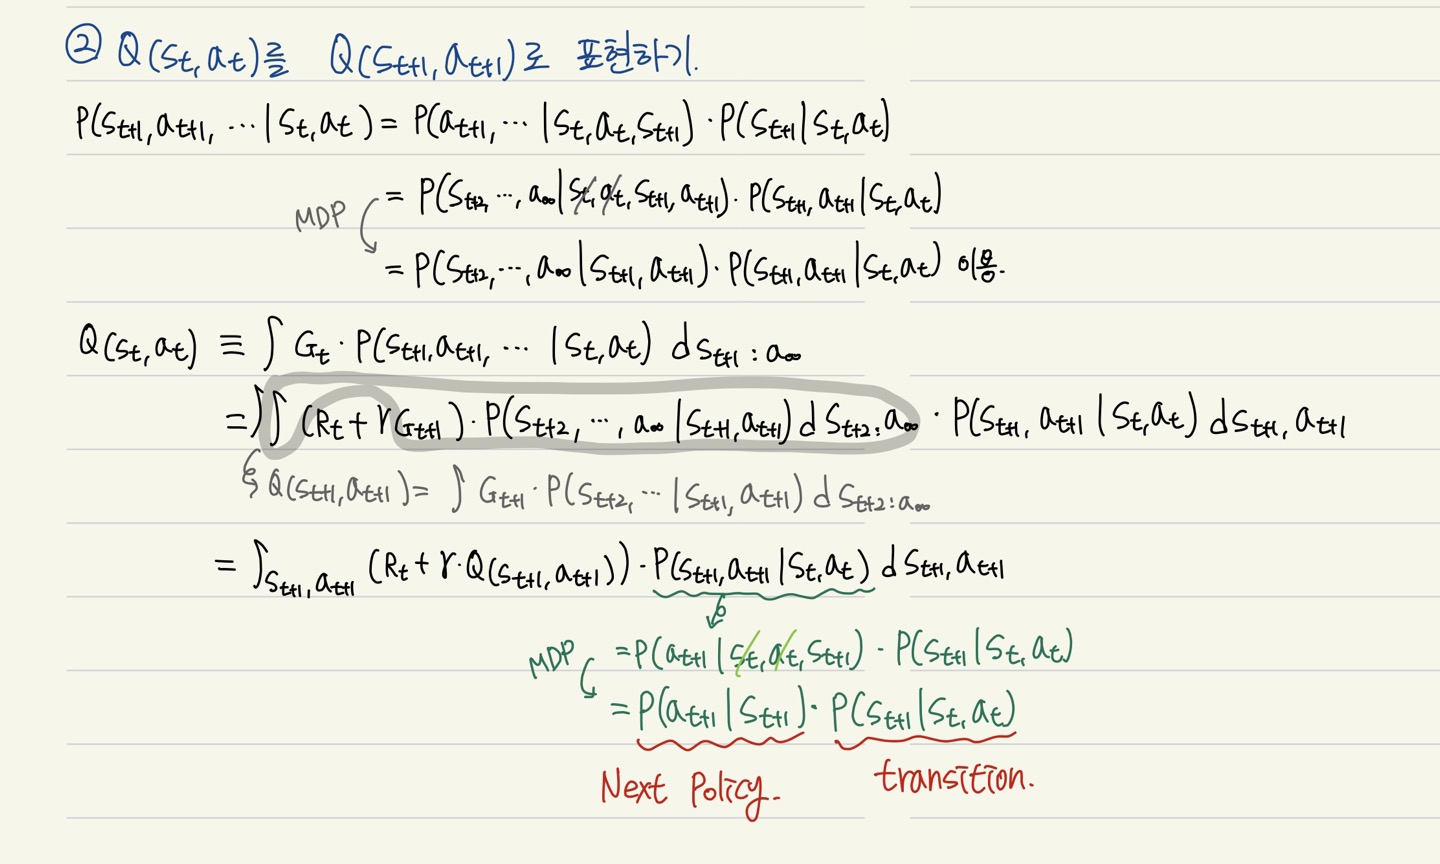 ② Q(St, at)를 Q(St+1, at+1)로 표현하기.
P(St+1, at+1, ⋯ | St, at) = P(at+1, ⋯ | St, at, St+1) · P(St+1 | St, at)
= P(St+2, ⋯, a∞ | St, at, St+1, at+1) · P(St+1, at+1 | St, at)
MDP
= P(St+2, ⋯, a∞ | St+1, at+1) · P(St+1, at+1 | St, at) 이용.
Q(St, at) ≡ ∫ Gt · P(St+1, at+1, ⋯ | St, at) dSt+1 : a∞
= ∫∫ (Rt + γGt+1) · P(St+2, ⋯, a∞ | St+1, at+1) dSt+2 : a∞ · P(St+1, at+1 | St, at) dSt+1, at+1
Q(St+1, at+1) = ∫ Gt+1 · P(St+2, ⋯ | St+1, at+1) dSt+2 : a∞
= ∫St+1, at+1 (Rt + γ · Q(St+1, at+1)) · P(St+1, at+1 | St, at) dSt+1, at+1
= P(at+1 | St, at, St+1) · P(St+1 | St, at)
MDP
= P(at+1 | St+1) · P(St+1 | St, at)
Next Policy. transition.